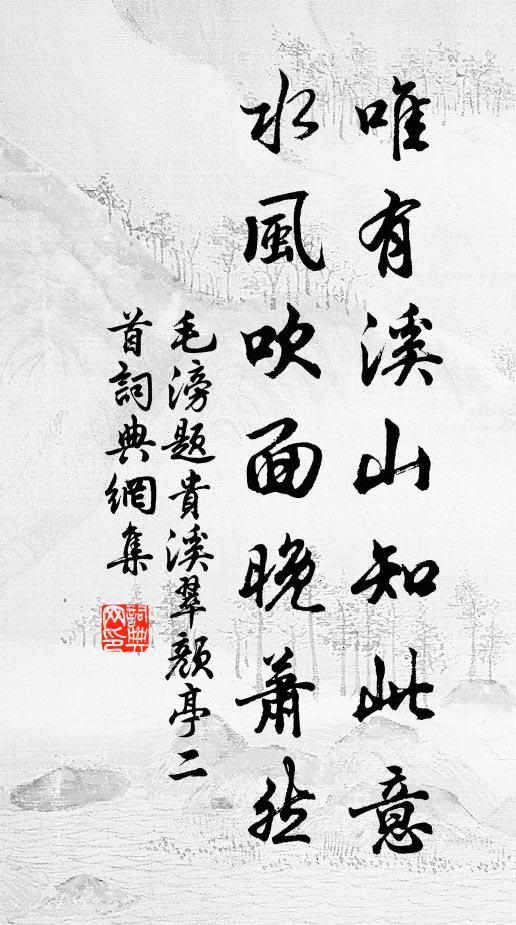 唯有溪山知此意
水風吹面晚蕭然
毛滂題貴溪翠顏亭二
首詞典網集
詞典
网印